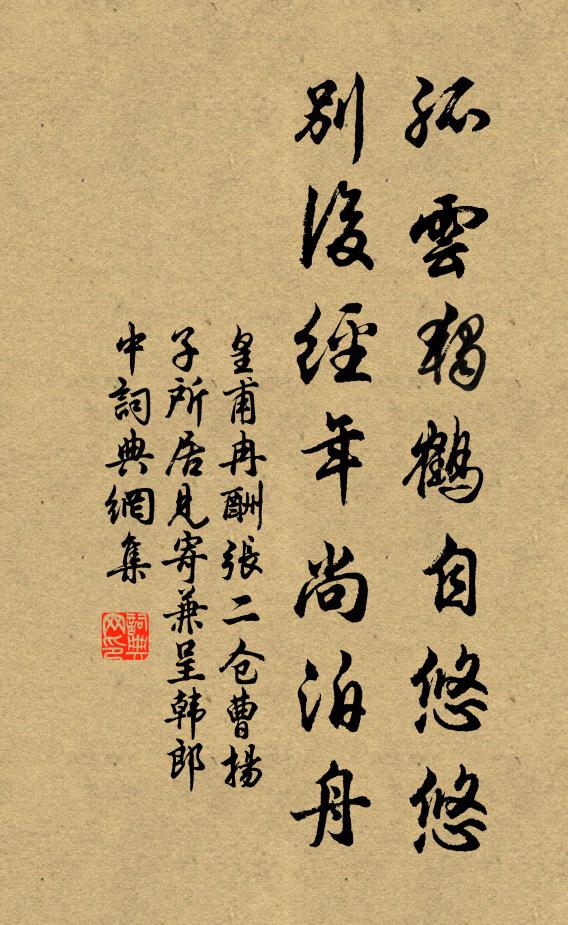 孤雲獨鶴自悠悠
別後經年尚泊舟
皇甫冉酬張二仓曹揚
子所居見寄兼呈韩郎
中詞典網集
詞典网印